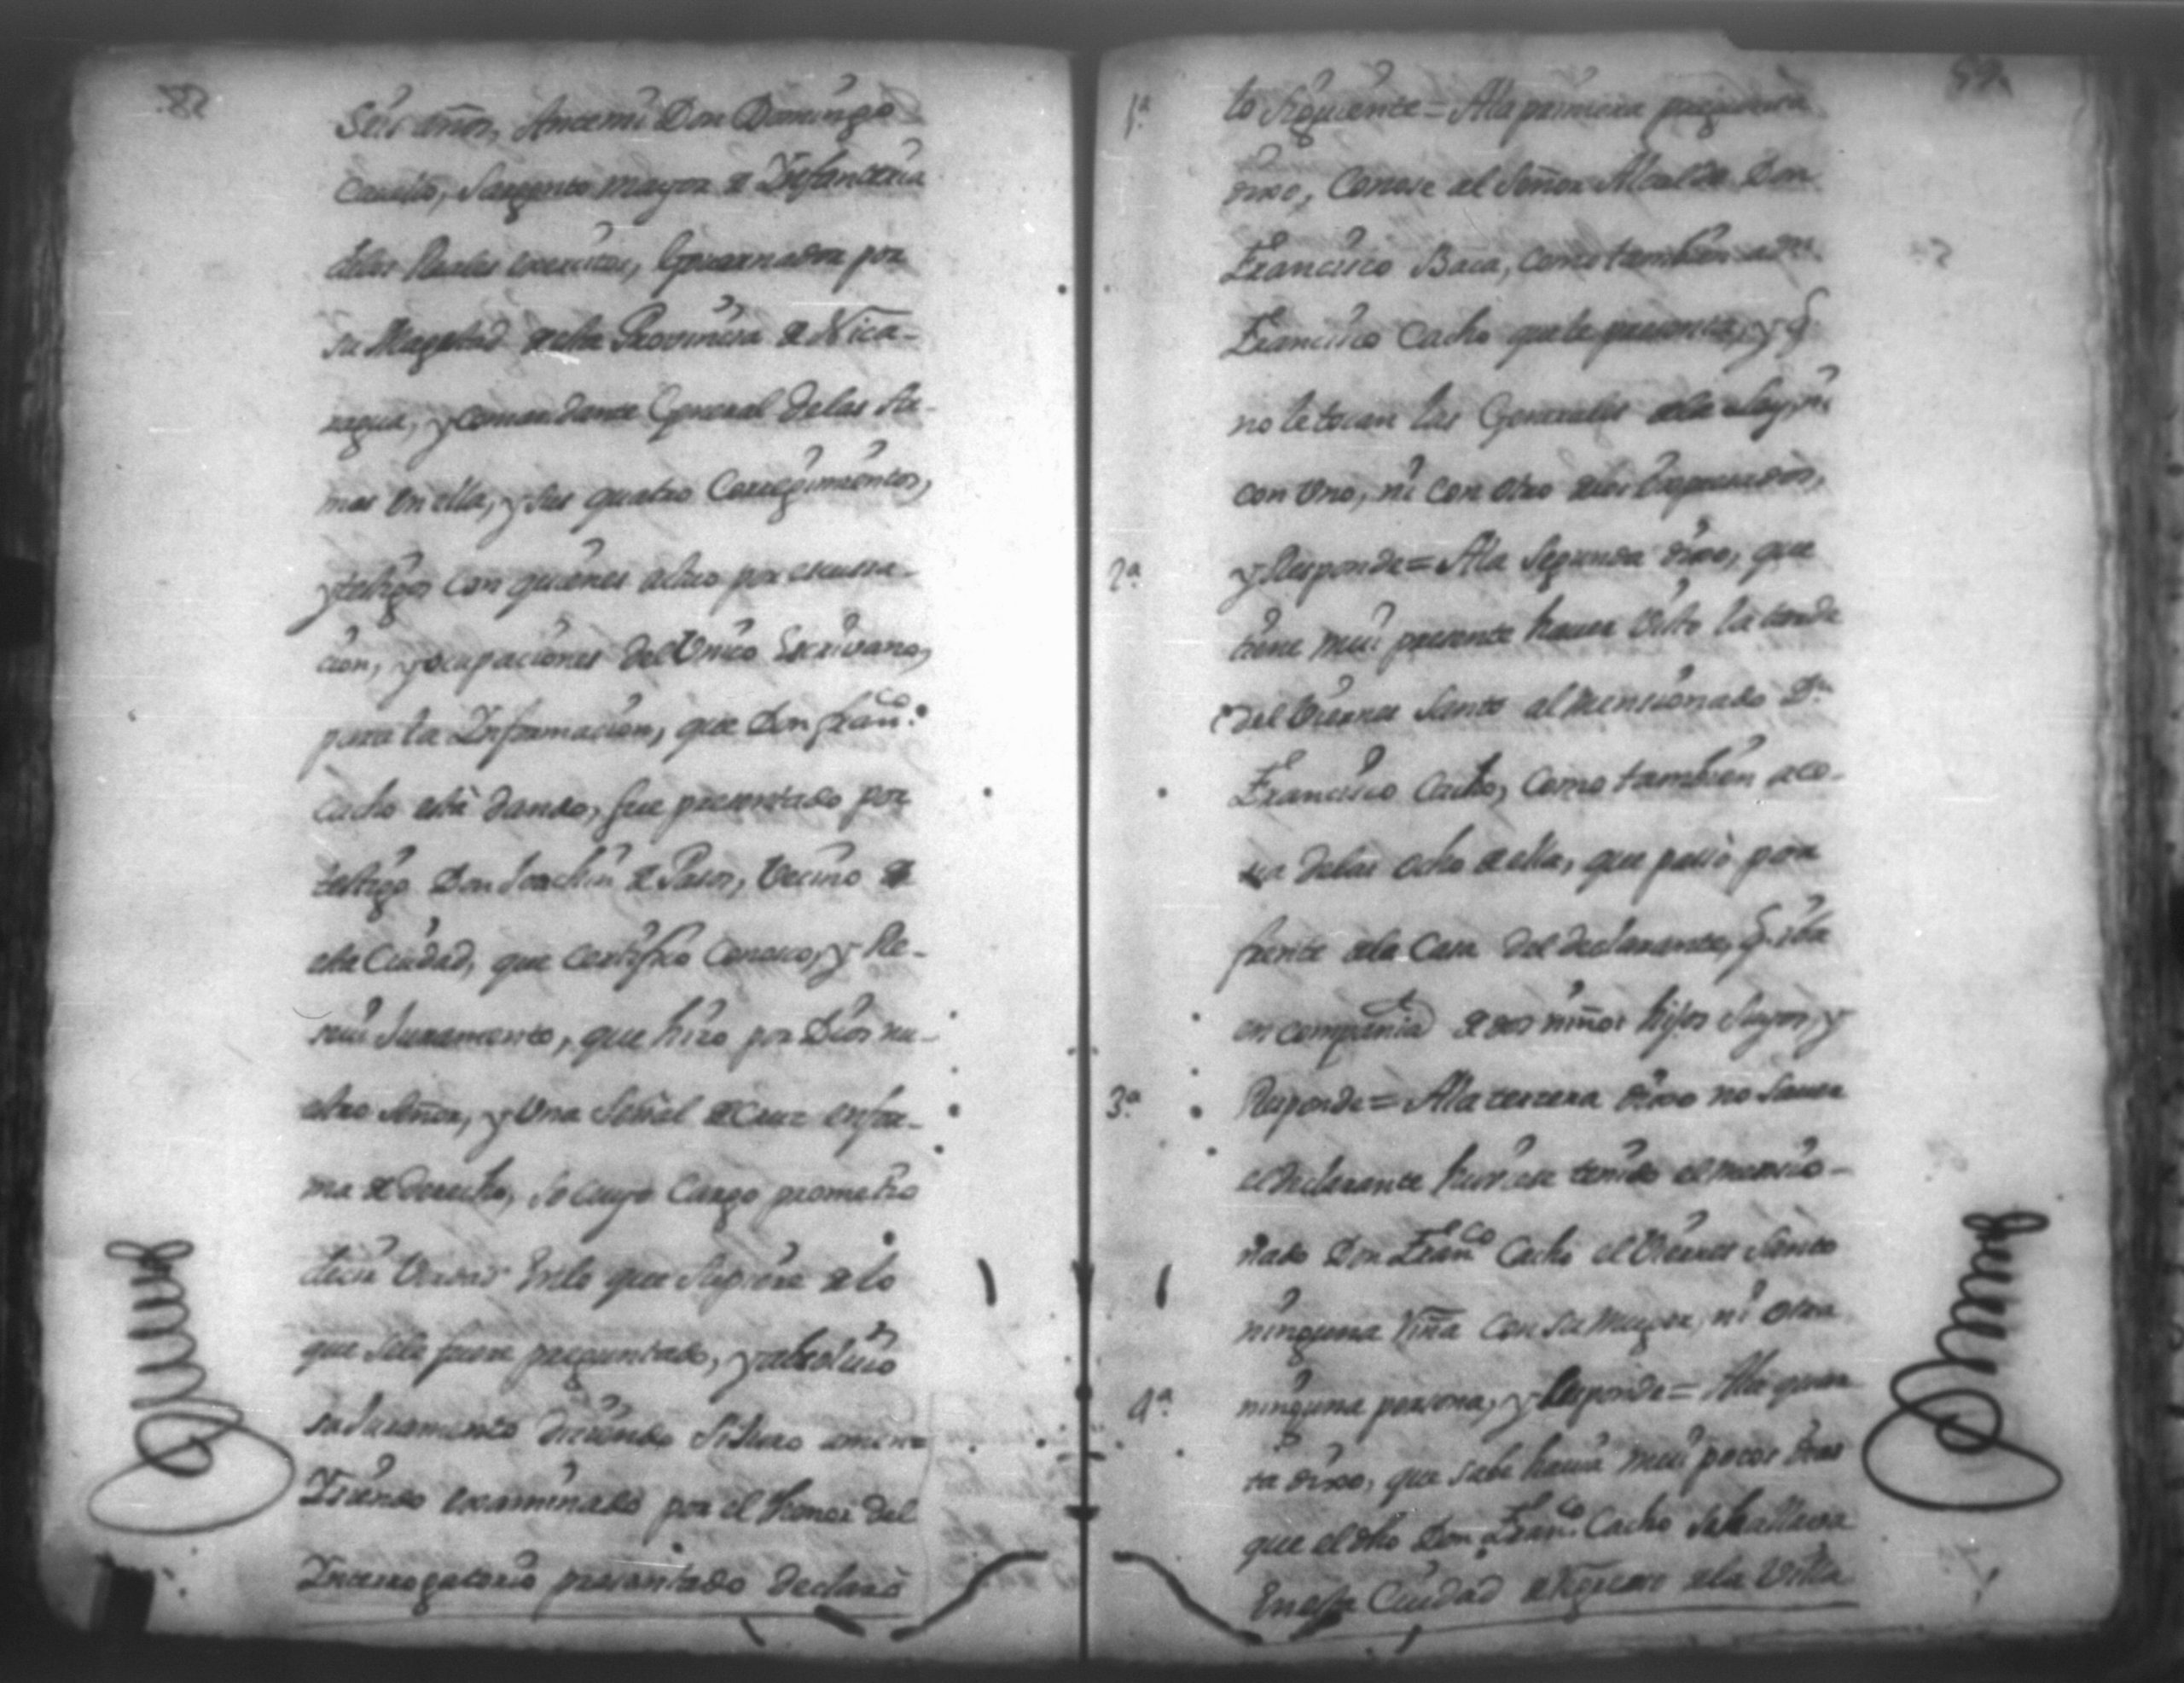 Seis años, Antemi Don Domingo
Cavello, Sargento mayor de Infanteria
delos Reales exercitos, Governador por
su Magestad desta Provincia de Nica-
ragua, y comandante General delas Ar-
mas en ella, y sus quatro Corregimientos,
y testigos con quienes actuo por escusa-
cion, y ocupaciones del Unico Escrivano,
para la Informacion, que Don Franco.
Cacho està dando, fue presentado por
testigo Don Joachin de Pasos, Vecino de
esta Ciudad, que certifico conosco, y Re-
seui Juramento, que hizo por Dios nu-
estro Señor, y Una Señal de Cruz enfor-
ma de derecho, so cuyo Cargo prometio
decir Verdad enlo que Supiere de lo
que sele fuere preguntado, y absoluio
su Juramento diciendo Si Juro amen =
Isiendo examinado por el thenor del
Interrogatorio presentado declarò
59.
1a. lo Siguiente = Ala primera pregunta
dixo, Conose al Señor Alcalde Don
Francisco Baca, como tambien a Dn.
Francisco Cacho que le presenta, y q
no le tocan las Generales dela Ley, ni
con Uno, ni con otro delos expresados,
2a. y Responde = Ala Segunda dixo, que
tiene mui presente hauer Visto la tarde
del Viernes Santo al mensionado Dn.
Francisco Cacho, como tambien ace-
rca delas ocho de ella, que pasò por
frente dela Casa del declarante, q. iba
en compania de dos niños hijos Suyos, y
3a. Responde = Ala tercera dixo no Sauer
el declarante huviese tenido el mencio-
nado Don Franco Cacho el Viernes Santo
ninguna riña con su Muger, ni otra
4a. ninguna persona, y Responde = Ala quar
ta dixo, que sabe hauia mui pocos dias
que el dho Don Franco. Cacho se hallava
En esta Ciudad de regreso dela Villa